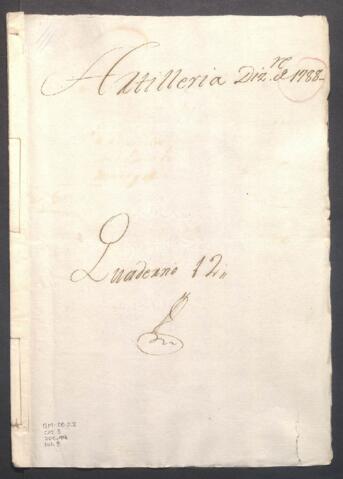 Artilleria Diz.re de 1788.
Quaderno 12.